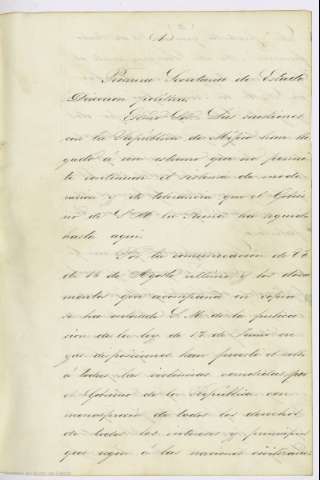 Primera Secretaría de Estado
Dirección política.
Excmo Sor. Las cuestiones
con la República de Méjico han lle
gado á un estremo que no permi
te continuar el sistema de mode
racion y de tolerancia que el Gobier
no de S. M. la Reina ha seguido
hasta aquí.
Por la comunicacion de
de 16 de Agosto último y los docu
mentos que acompaña en copia
se ha enterado S. M. de la publica
cion de la ley de 17 de Junio cu
yas disposiciones han puesto el sello
á todas las violencias cometidas por
el Gobierno de la República con
menosprecio de todos los derechos
de todos los intereses y principios
que rigen á las naciones civilizadas